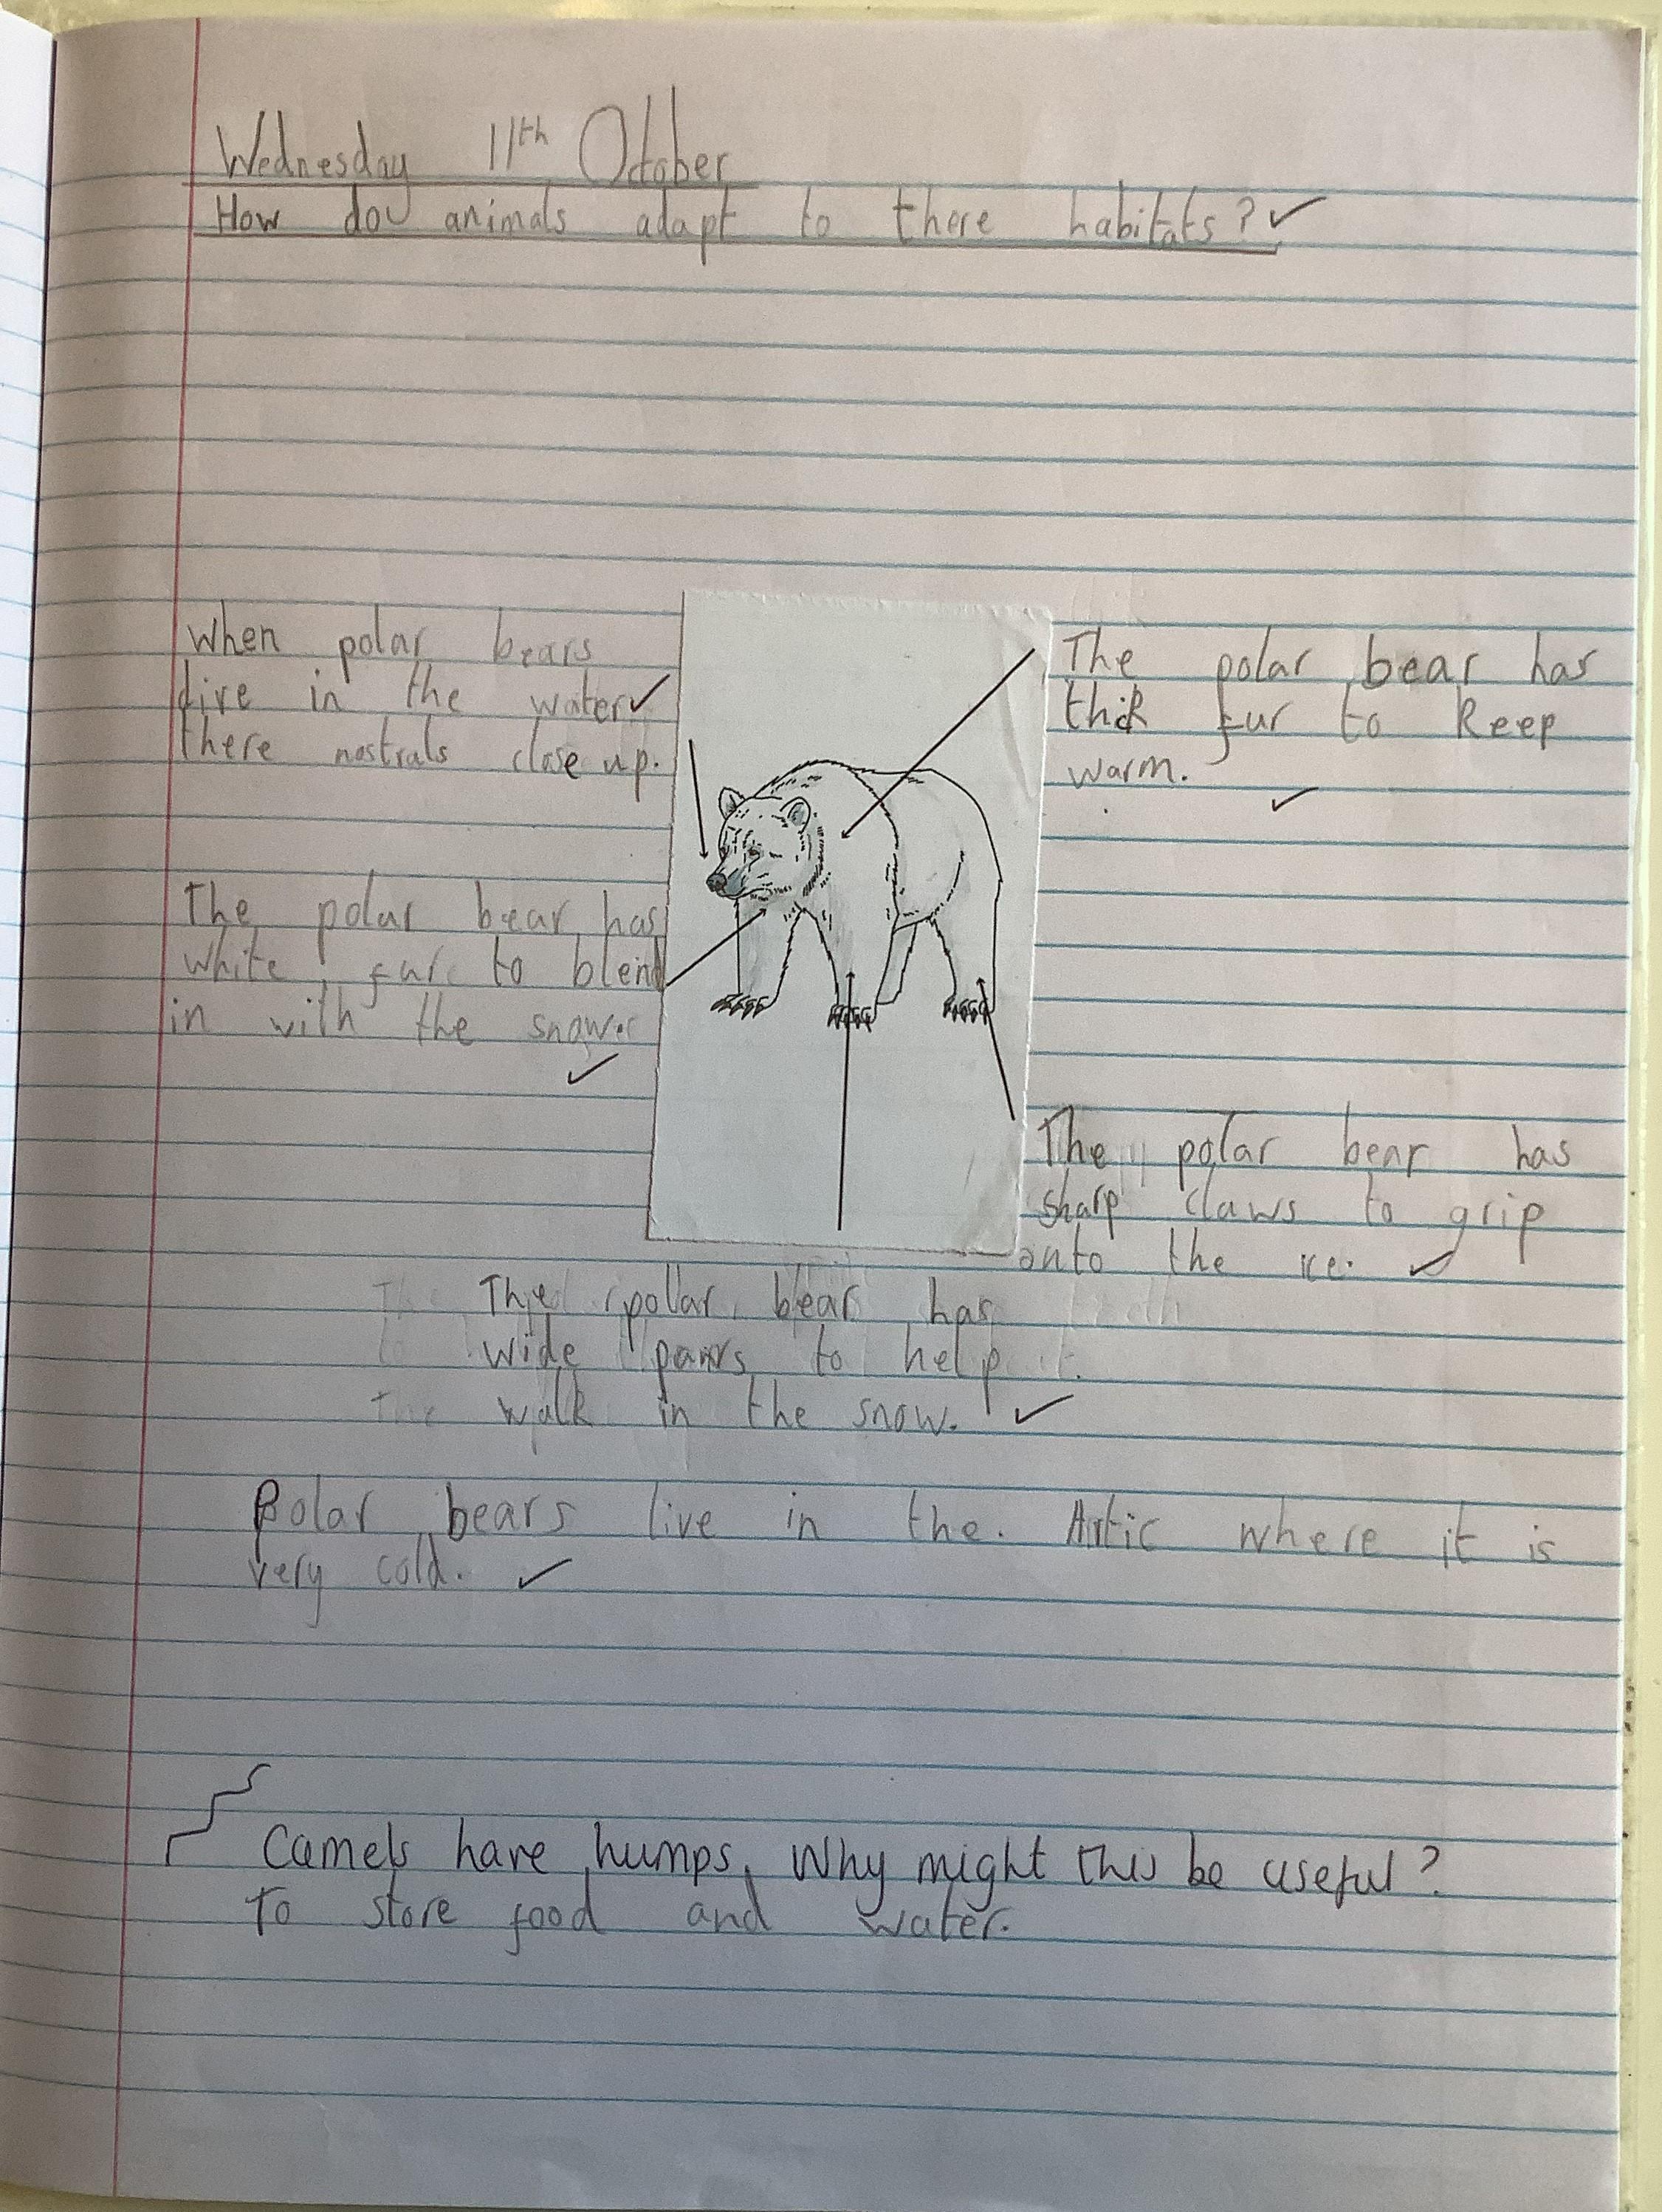 Wednesday 11th October
How do animals adapt to there habitats?
When polar bears
dive in the water
there nostrals close up.
The polar bear has
thick fur to keep
warm.
The polar bear has
white fur to blend
in with the snow.
The polar bear has
sharp claws to grip
onto the ice.
The polar bear has
wide paws to help it
walk in the snow.
Polar bears live in the. Artic where it is
very cold.
Camels have humps. Why might this be useful?
To store food and water.